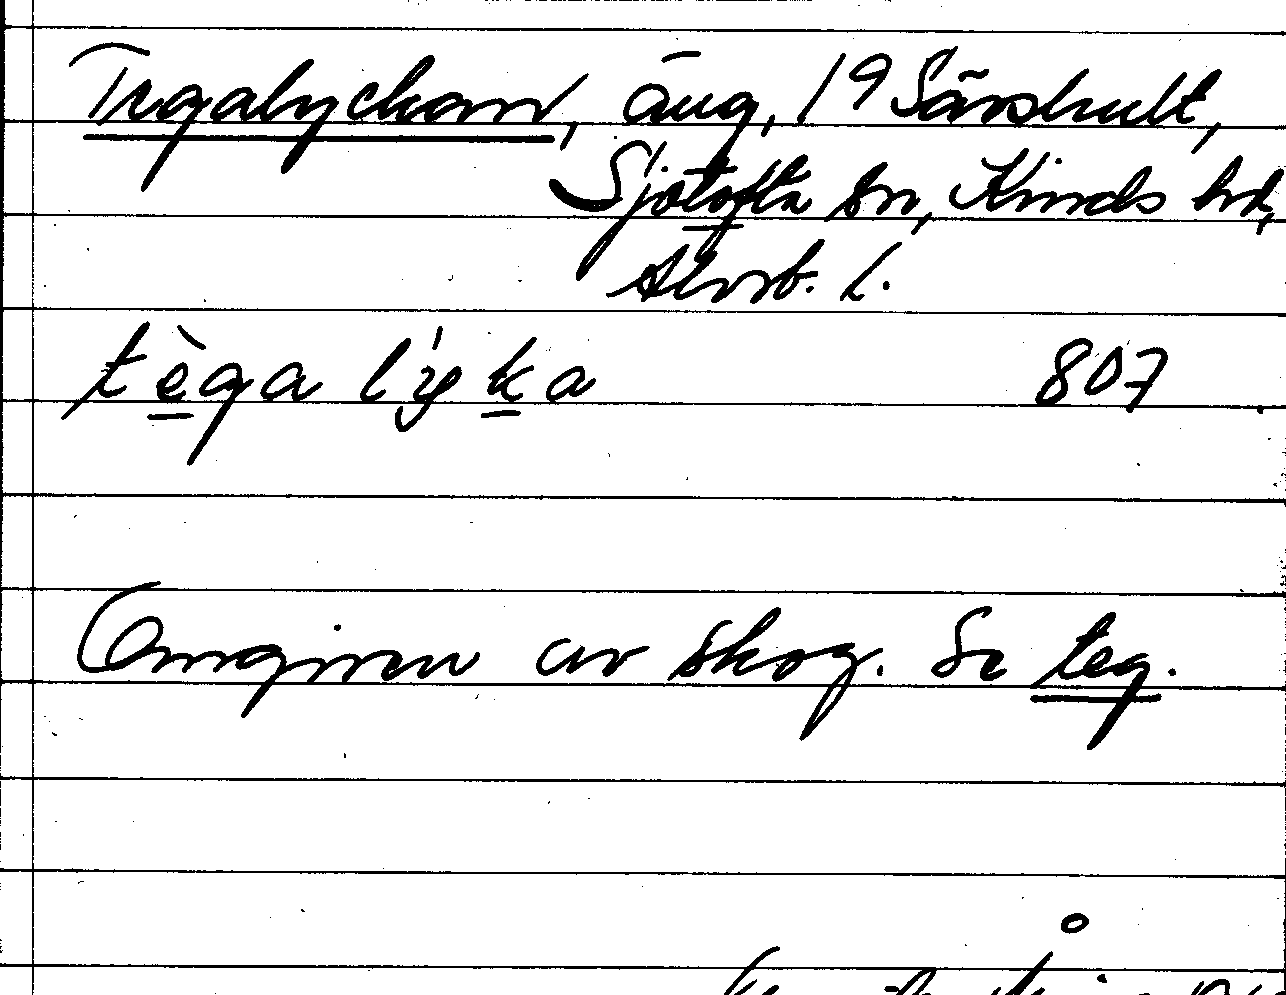 Tegalyckorn, äng, 19 Särshult,
Sjötofta sn, Kinds hd,
Älvsb. l.
tèga lýka 807
Omgiven av skog. Se teg.